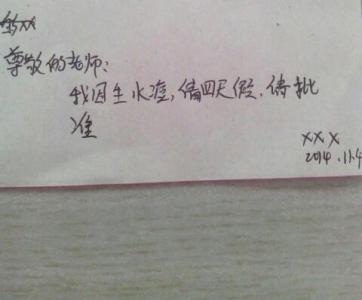 尊敬的老师：
我因生水痘，请四天假，待批
准
XXX
2014.11.4